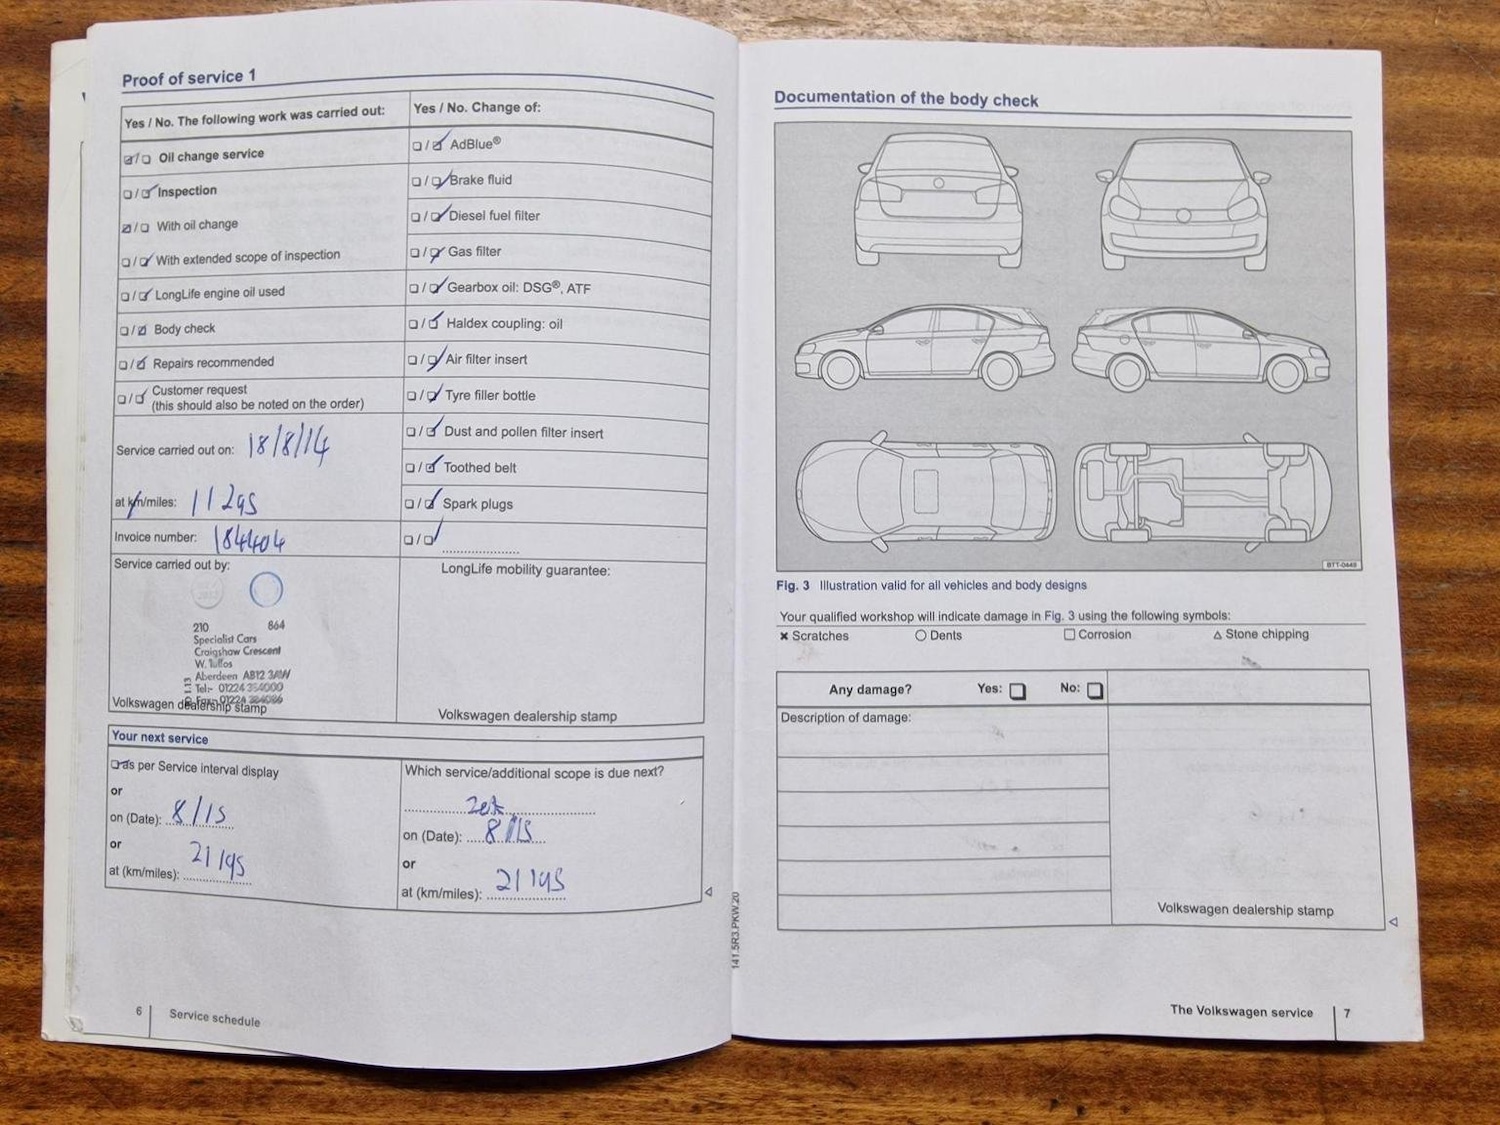 Proof of service 1
Yes / No. The following work was carried out:
Oil change service
Inspection
With oil change
With extended scope of inspection
LongLife engine oil used
Body check
Repairs recommended
Customer request
(this should also be noted on the order)
Service carried out on: 18/8/14
at km/miles: 11295
Invoice number: 184404
Service carried out by:
210 864
Specialist Cars
Craigshaw Crescent
W. Tullos
Aberdeen AB12 3AW
Tel:- 01224
Volkswagen dealership stamp
Yes / No. Change of:
AdBlue®
Brake fluid
Diesel fuel filter
Gas filter
Gearbox oil: DSG®, ATF
Haldex coupling: oil
Air filter insert
Tyre filler bottle
Dust and pollen filter insert
Toothed belt
Spark plugs
LongLife mobility guarantee:
Volkswagen dealership stamp
Your next service
as per Service interval display
or
on (Date): 8/15
or
at (km/miles): 21195
Which service/additional scope is due next?
on (Date): 8/15
or
at (km/miles): 21195
6 Service schedule
141.5R3.PKW.20
Documentation of the body check
BTT-0449
Fig. 3 Illustration valid for all vehicles and body designs
Your qualified workshop will indicate damage in Fig. 3 using the following symbols:
× Scratches ○ Dents □ Corrosion △ Stone chipping
Any damage? Yes: □ No: □
Description of damage:
Volkswagen dealership stamp
The Volkswagen service 7